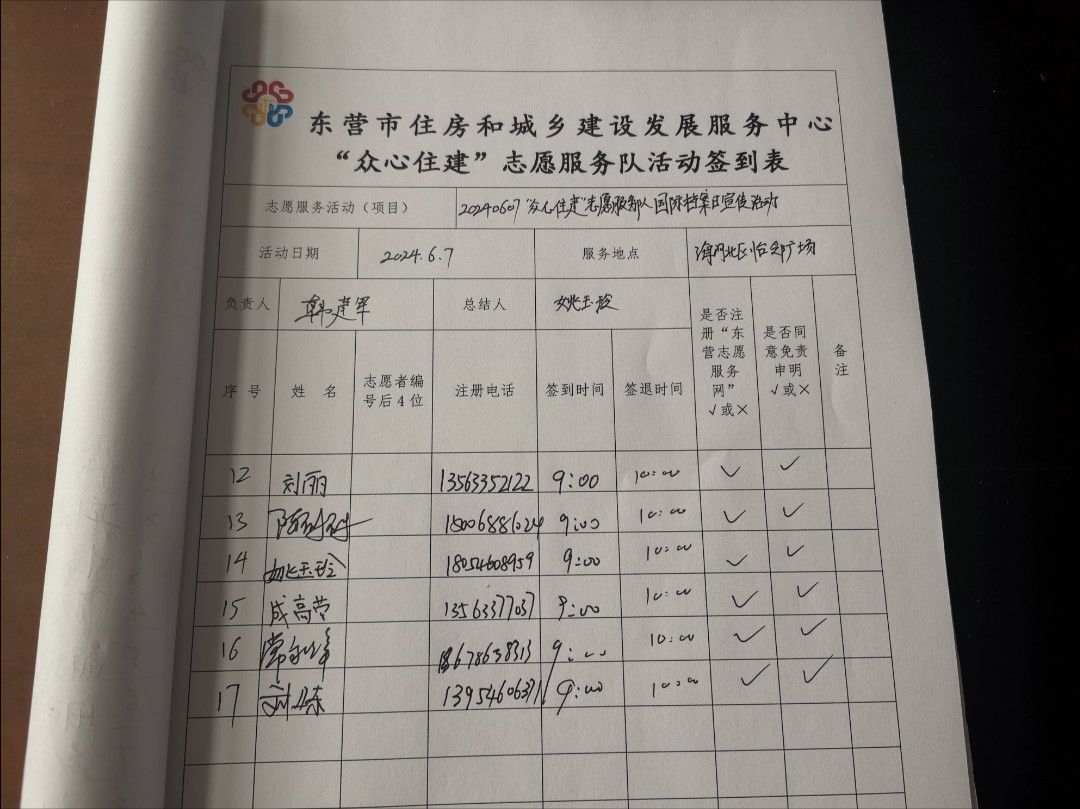 东营市住房和城乡建设发展服务中心
“众心住建”志愿服务队活动签到表
志愿服务活动（项目） 20240607“众心住建”志愿服务队国际档案日宣传活动
活动日期 2024.6.7 服务地点 广场
负责人 韩建军 总结人 姚玉玲
序号 姓名 志愿者编号后4位 注册电话 签到时间 签退时间 是否注册“东营志愿服务网”√或× 是否同意免责申明√或× 备注
12 刘丽 13563352122 9:00 10:00 ✓ ✓
13 18006881024 9:00 10:00 ✓ ✓
14 姚玉玲 18054608959 9:00 10:00 ✓ ✓
15 成高营 13563377037 9:00 10:00 ✓ ✓
16 18678638313 9:00 10:00 ✓ ✓
17 13954606371 9:00 10:00 ✓ ✓